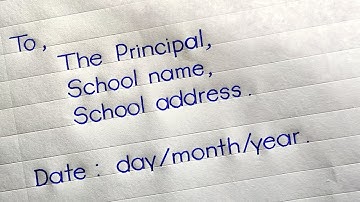 To,
The Principal,
School name,
School address.
Date : day/month/year.